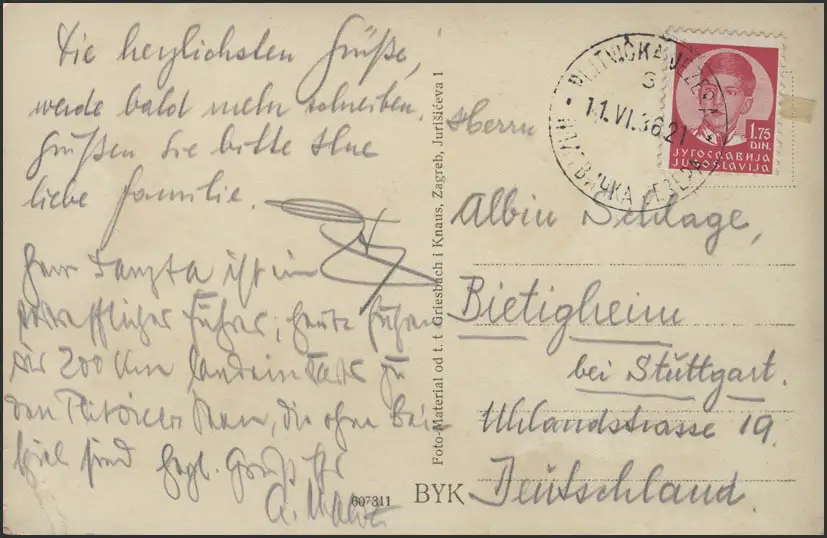 Die herzlichsten Grüße,
werde bald mehr schreiben.
Grüßen Sie bitte Ihre
liebe Familie.
Herr ist ein
vortrefflicher Führer, heute fuhren
wir 200 Km landeinwärts zu
den Plitvicer Seen, die ohne Bei-
spiel sind Hrzl. Gruß Ihr
A.
Foto-Material od t. t. Griesbach i Knaus, Zagreb, Jurišićeva 1
607311
BYK
PLITVIČKA JEZERA
11.VI.36.21
ПЛИТВИЧКА ЈЕЗЕРА
1.75
DIN.
ЈУГОСЛАВИЈА
JUGOSLAVIJA
Herrn
Albin
Bietigheim
bei Stuttgart.
Uhlandstrasse 19.
Deutschland.